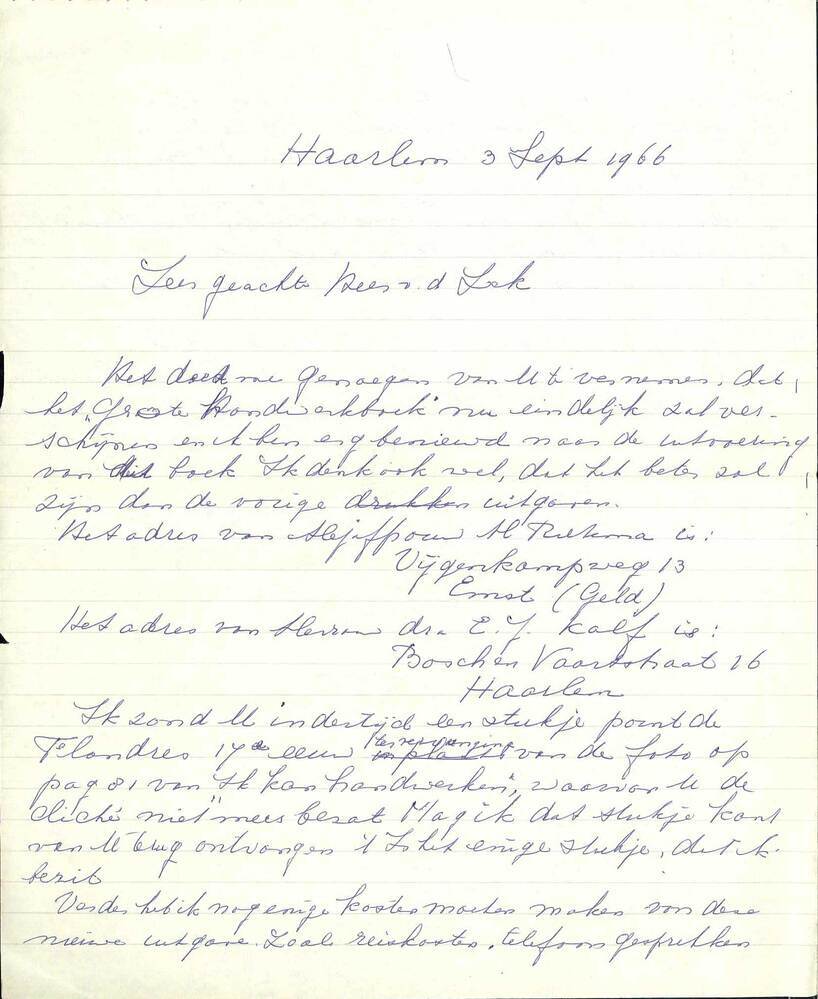 Haarlem 3 Sept 1966
Zeer geachte Heer v. d. Lek
Het doet me genoegen van U te vernemen, dat
het "Grote Handwerkboek" nu eindelijk zal ver-
schijnen en ik ben erg benieuwd naar de uitvoering
van dit boek Ik denk ook wel, dat het beter zal
zijn dan de vorige drukken uitgaven.
Het adres van Mejuffrouw M is:
Vijgenkampweg 13
Emst (Geld)
Het adres van Mevrouw dra E. J. Kalf is:
Vaartstraat 26
Haarlem
Ik zond U indertijd een stukje point de
Flandres 17de eeuw ter vervanging van de foto op
pag 81 van "Ik kan handwerken", waarvan U de
cliché niet meer bezat Mag ik dat stukje kant
van U terug ontvangen 't Is het enige stukje, dat ik
bezit
Verder heb ik nog enige kosten moeten maken van deze
nieuwe uitgave. Zoals reiskosten, telefoon gesprekken